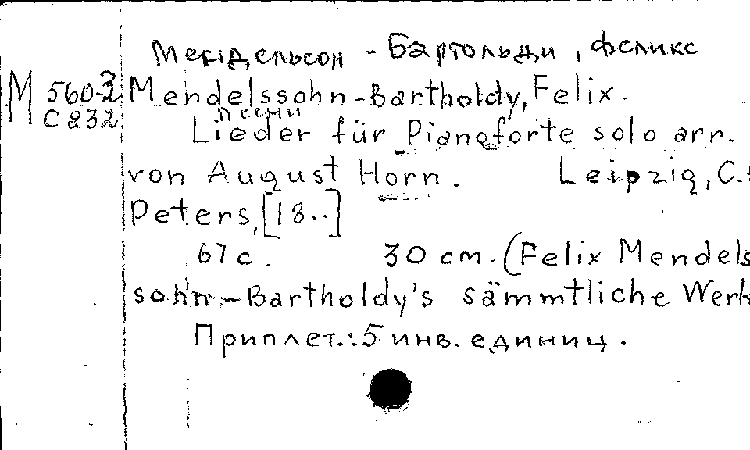 Мендельсон - Бартольди, Феликс
М 560-2 Mendelssohn-Bartholdy, Felix.
С 232 песни
Lieder für Pianoforte solo arr.
von August Horn. Leipzig, C.F
Peters, [18..]
67 с. 30 cm. (Felix Mendels
sohn-Bartholdy's sämmtliche Werk
Приплет.: 5 инв. единиц.